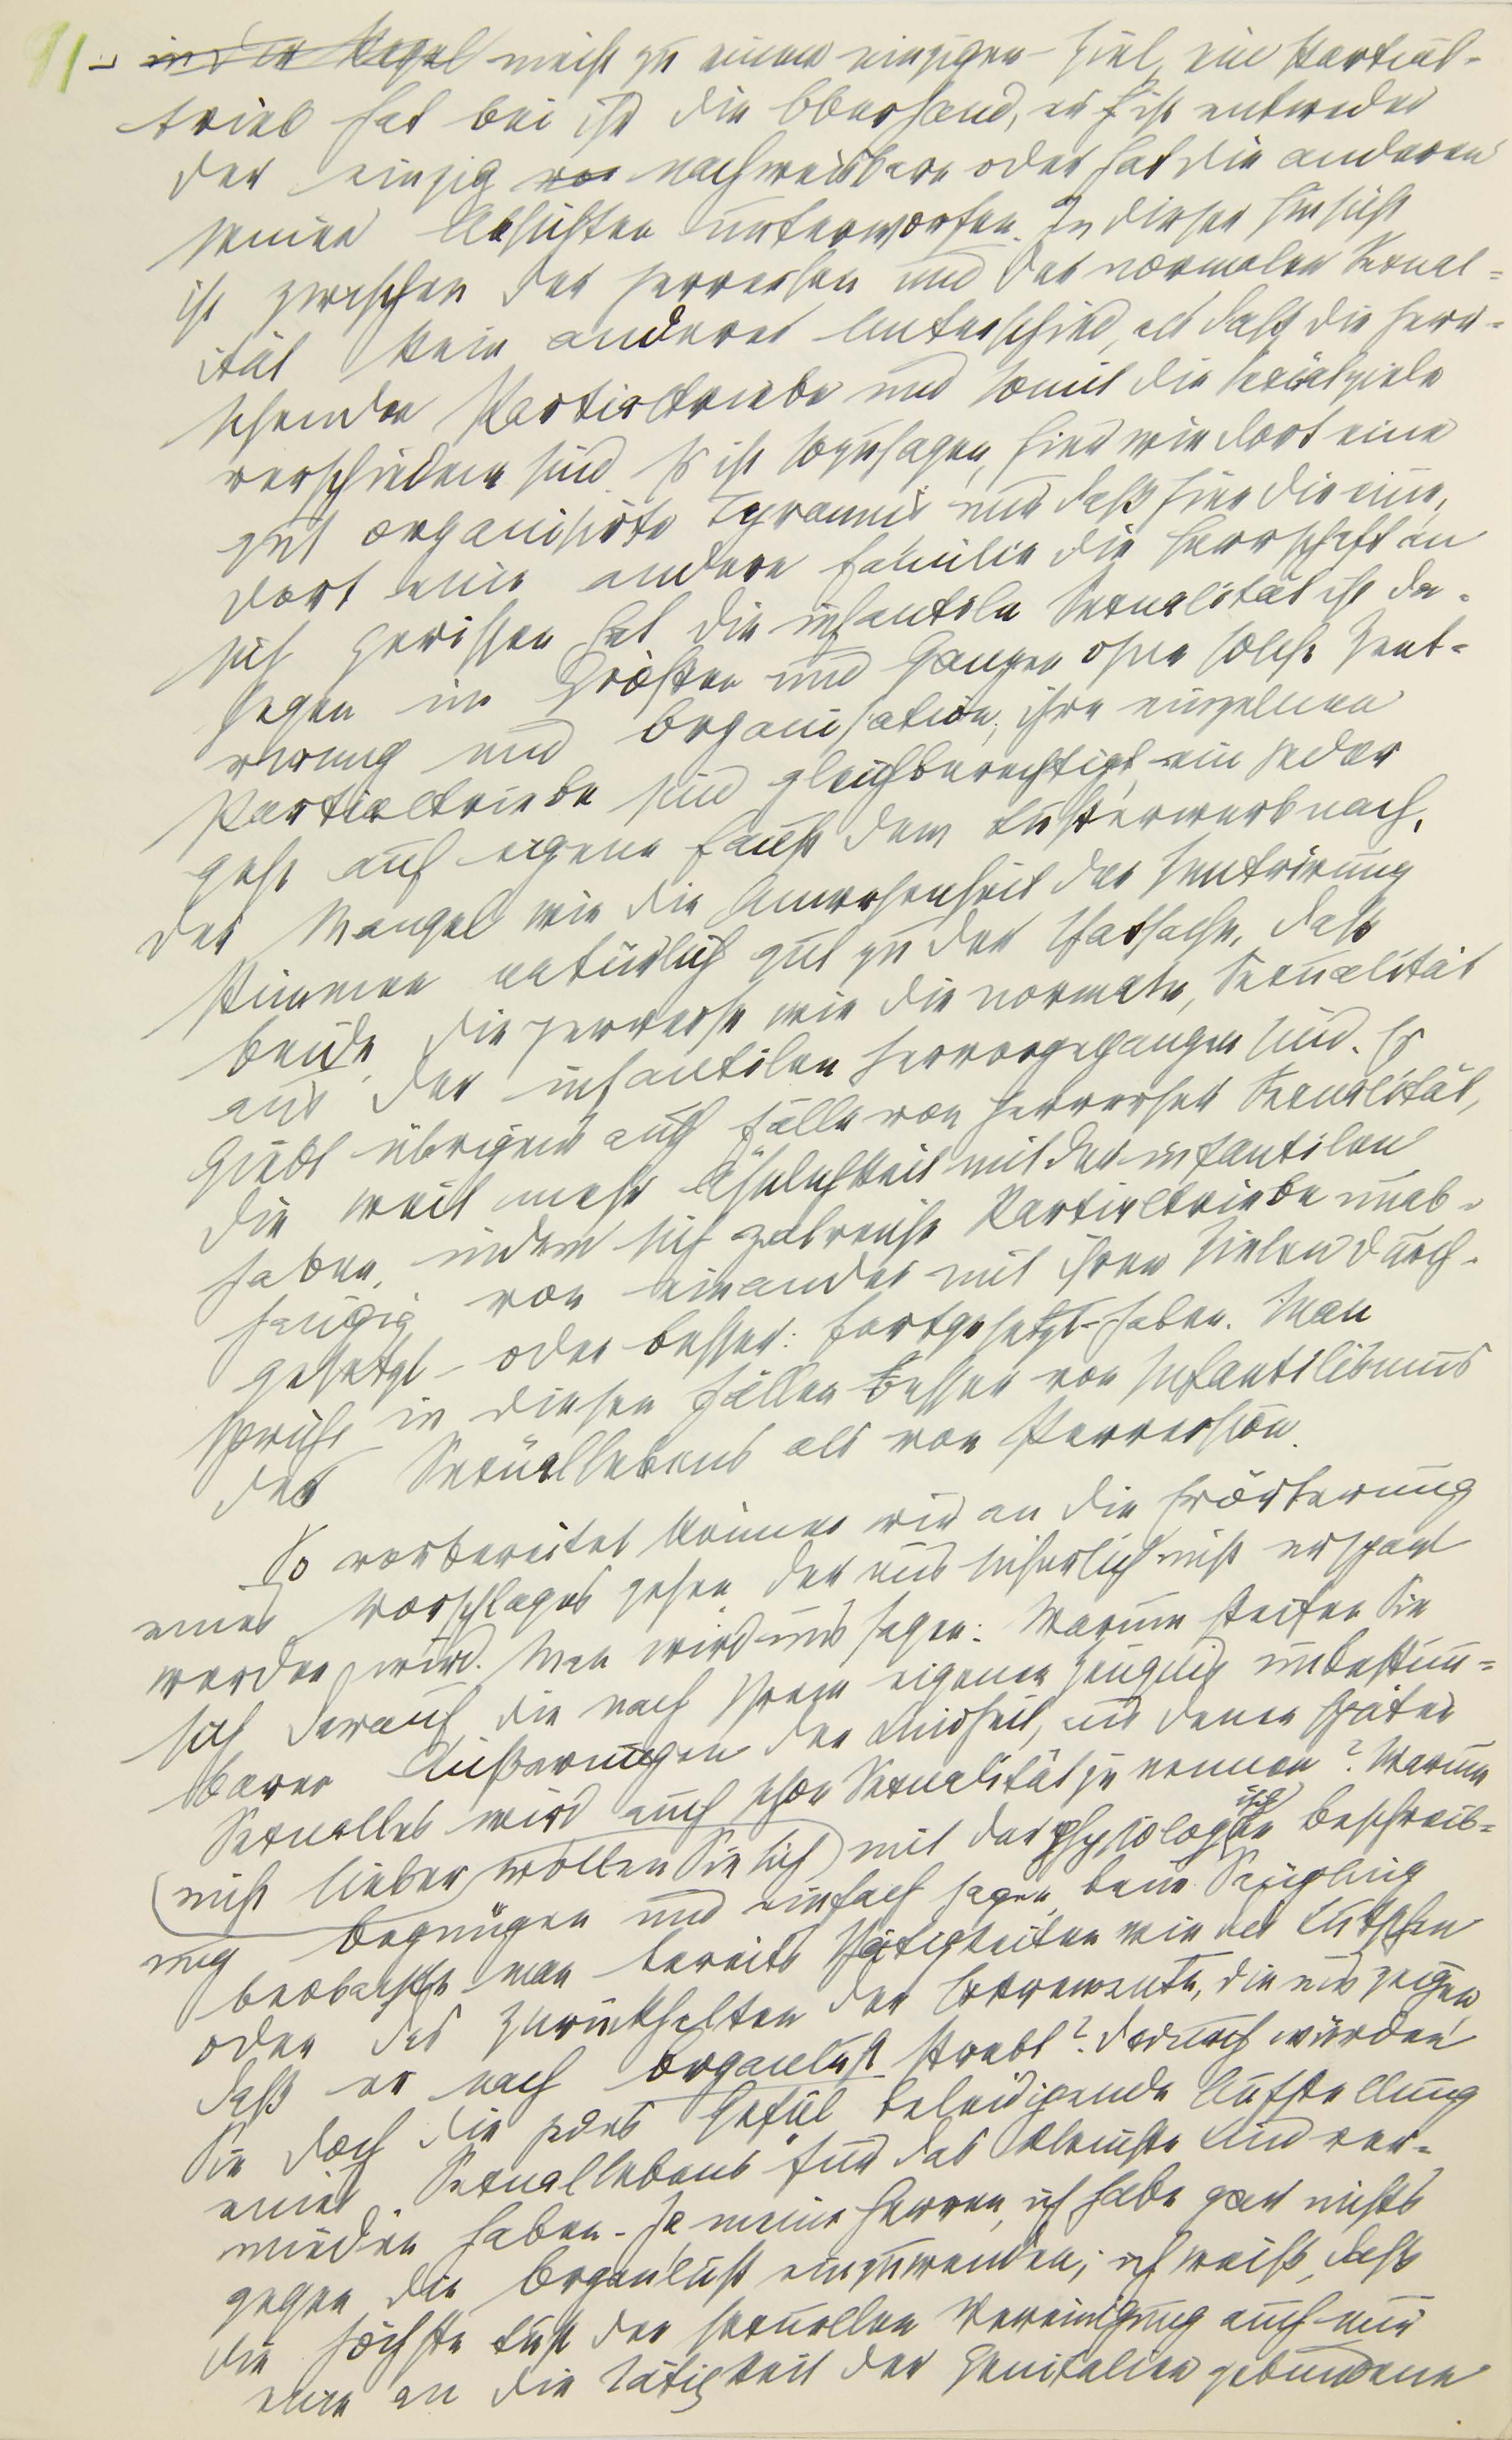 11 in der Regel meist zu einem einzigen Ziel, ein Partial-
trieb hat bei ihr die Oberhand, er ist entweder
der einzig nachweisbare oder hat die anderen
seinen Absichten unterworfen. In dieser Hinsicht
ist zwischen der perversen und der normalen Sexual-
ität kein anderer Unterschied, als daß die herr-
schenden Partialtriebe und somit die Sexualziele
verschieden sind. Es ist sozusagen hier wie dort eine
gut organisirte Tyrannis nur daß hier die eine,
dort eine andere Familie die Herrschaft an
sich gerissen hat. Die infantile Sexualität ist da-
gegen im Großen und Ganzen ohne solche Zent-
rirung und Organisation, ihre einzelnen
Partialtriebe sind gleichberechtigt, ein jeder
geht auf eigene Faust dem Lusterwerb nach.
Der Mangel wie die Anwesenheit der Zentrirung
stimmen natürlich gut zu der Thatsache, daß
beide, die perverse wie die normale, Sexualität
aus der infantilen hervorgegangen sind. Es
giebt übrigens auch Fälle von perverser Sexualität,
die weit mehr Ähnlichkeit mit der infantilen
haben, indem sich zalreiche Partialtriebe unab-
hängig von einander mit ihren Zielen durch-
gesetzt – oder besser: fortgesetzt – haben. Man
spricht in diesen Fällen besser von Infantilismus
des Sexuallebens als von Perversion.
So vorbereitet können wir an die Erörterung
eines Vorschlages gehen, der uns sicherlich nicht erspart
werden wird. Man wird uns sagen: Warum steifen Sie
sich darauf, die nach Ihrem eigenen Zeugnis unbestimm-
baren Äußerungen der Kindheit, aus denen später
Sexuelles wird auch schon Sexualität zu nennen? Warum
nicht lieber wollen Sie sich mit der physiologischen Beschreib-
ung begnügen und einfach sagen, beim Säugling
beobachte man bereits Thätigkeiten wie das Lutschen
oder das Zurückhalten der Excremente, die uns zeigen,
daß er nach Organlust strebt? Dadurch würden
Sie doch die jedes Gefül beleidigende Aufstellung
eines Sexuallebens für das kleinste Kind ver-
mieden haben. – Ja, meine Herren, ich habe gar nichts
gegen die Organlust einzuwenden; ich weiß, daß
die höchste Lust der sexuellen Vereinigung auch nur
eine an die Tätigkeit der Genitalien gebundene